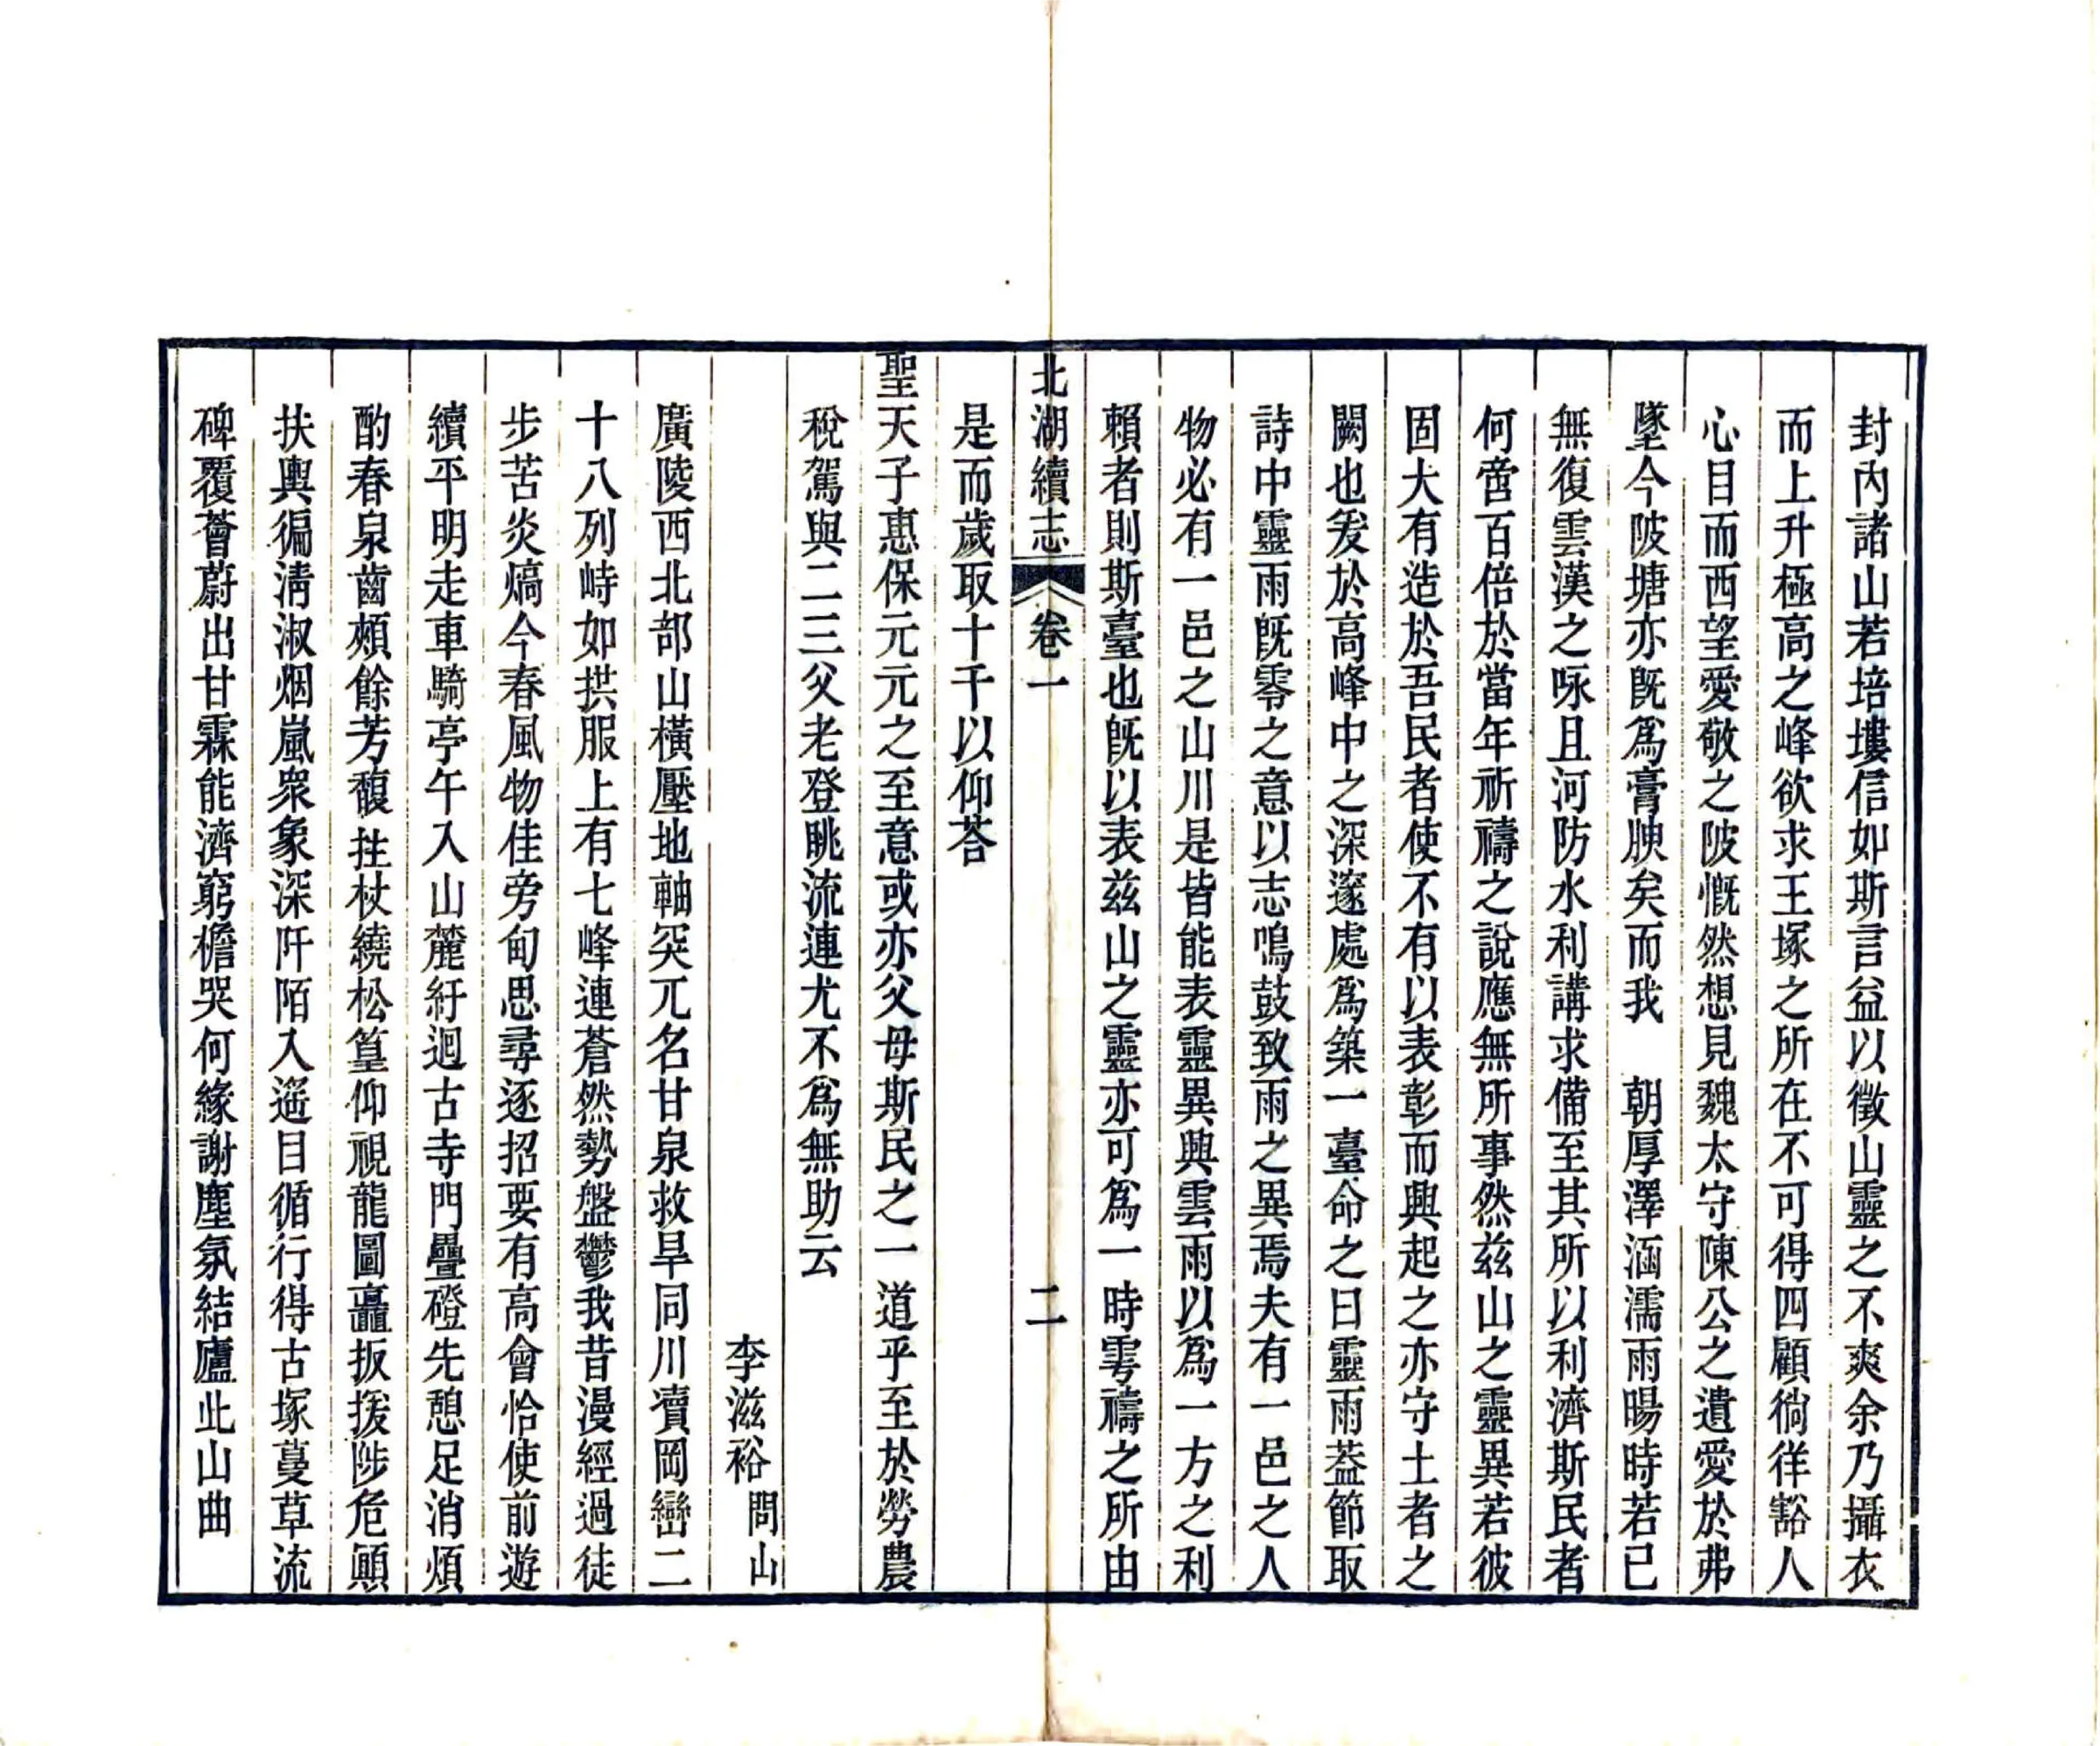 封內諸山若培塿信如斯言益以徵山靈之不爽余乃攝衣
而上升極高之峰欲求王塚之所在不可得四顧徜徉豁人
心目而西望愛敬之陂慨然想見魏太守陳公之遺愛於弗
墜今陂塘亦既爲膏腴矣而我　朝厚澤涵濡雨暘時若已
無復雲漢之咏且河防水利講求備至其所以利濟斯民者
何啻百倍於當年祈禱之說應無所事然兹山之靈異若彼
固大有造於吾民者使不有以表彰而興起之亦守土者之
闕也爰於高峰中之深邃處爲築一臺命之曰靈雨葢節取
詩中靈雨既零之意以志鳴鼓致雨之異焉夫有一邑之人
物必有一邑之山川是皆能表靈異興雲雨以爲一方之利
賴者則斯臺也既以表兹山之靈亦可爲一時雩禱之所由
北湖續志　卷一　二
是而歲取十千以仰荅
聖天子惠保元元之至意或亦父母斯民之一道乎至於勞農
稅駕與二三父老登眺流連尤不爲無助云
李滋裕問山
廣陵西北部山橫壓地軸突兀名甘泉救旱同川瀆岡巒二
十八列峙如拱服上有七峰連蒼然勢盤鬱我昔漫經過徒
步苦炎熇今春風物佳旁甸思尋逐招要有高會恰使前遊
續平明走車騎亭午入山麓紆迴古寺門疊磴先憩足消煩
酌春泉齒頰餘芳馥拄杖繞松篁仰視龍圖矗扳援陟危顚
扶輿徧淸淑烟嵐衆象深阡陌入遥目循行得古塚蔓草流
碑覆薈蔚出甘霖能濟窮檐哭何緣謝塵氛結廬此山曲